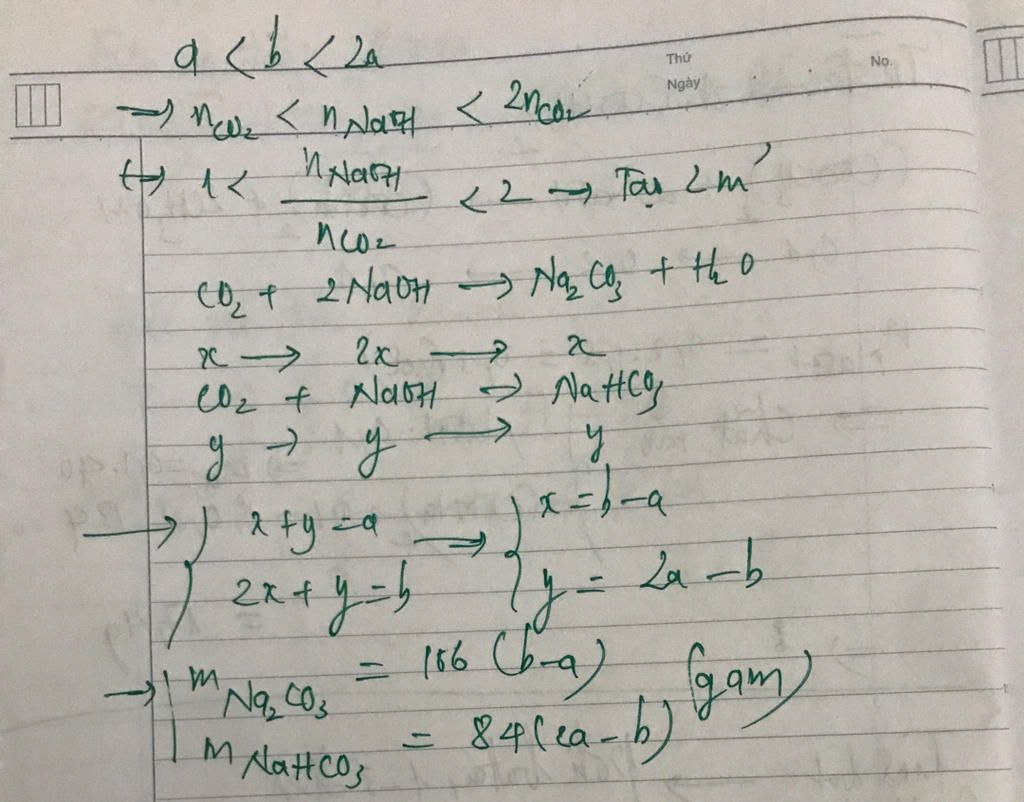 a < b < 2a
Thứ
Ngày
No.
→ nCO₂ < nNaOH < 2nCO₂
↔ 1 < nNaOH / nCO₂ < 2 → Tạo 2 m'
CO₂ + 2NaOH → Na₂CO₃ + H₂O
x → 2x → x
CO₂ + NaOH → NaHCO₃
y → y → y
→ { x + y = a → { x = b - a
2x + y = b y = 2a - b
→ | mNa₂CO₃ = 106 (b-a) (gam)
mNaHCO₃ = 84(2a - b)